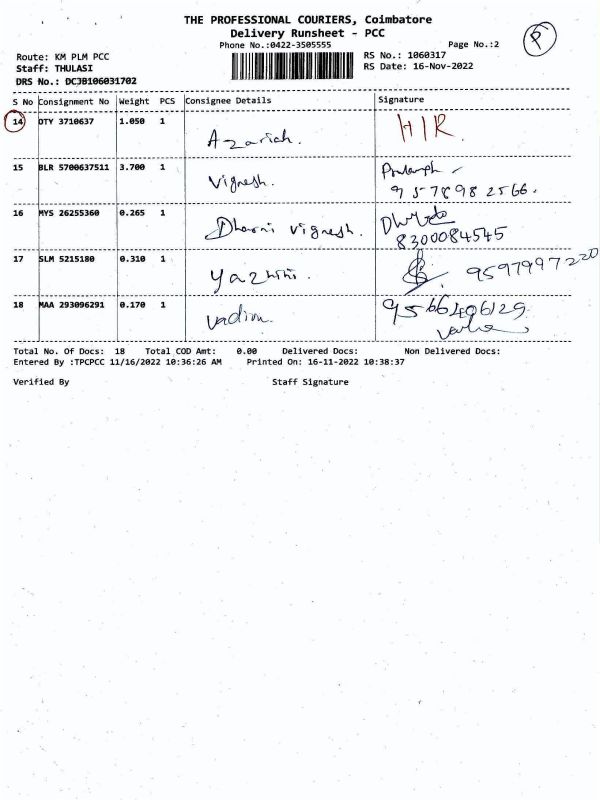 THE PROFESSIONAL COURIERS, Coimbatore
Delivery Runsheet - PCC
Phone No.:0422-3505555 Page No.:2
Route: KM PLM PCC RS No.: 1060317
Staff: THULASI RS Date: 16-Nov-2022
DRS No.: DCJB106031702
S No Consignment No Weight PCS Consignee Details Signature
14 OTY 3710637 1.050 1 Azariah. HIR.
15 BLR 5700637511 3.700 1 Vignesh.
9578982566.
16 MYS 26255360 0.265 1 Dharni Vignesh.
8300084545
17 SLM 5215180 0.310 1 Yazhini. 9597997220
18 MAA 293096291 0.170 1 Vadim. 9566406129
Total No. Of Docs: 18 Total COD Amt: 0.00 Delivered Docs: Non Delivered Docs:
Entered By :TPCPCC 11/16/2022 10:36:26 AM Printed On: 16-11-2022 10:38:37
Verified By Staff Signature